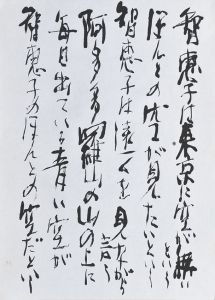 智恵子は東京に空が無い
という
ほんとの空が見たいという
智恵子は遠くを見ながら
言ふ
阿多多羅山の山の上に
毎日出ている青い空が
智恵子のほんとの空だという